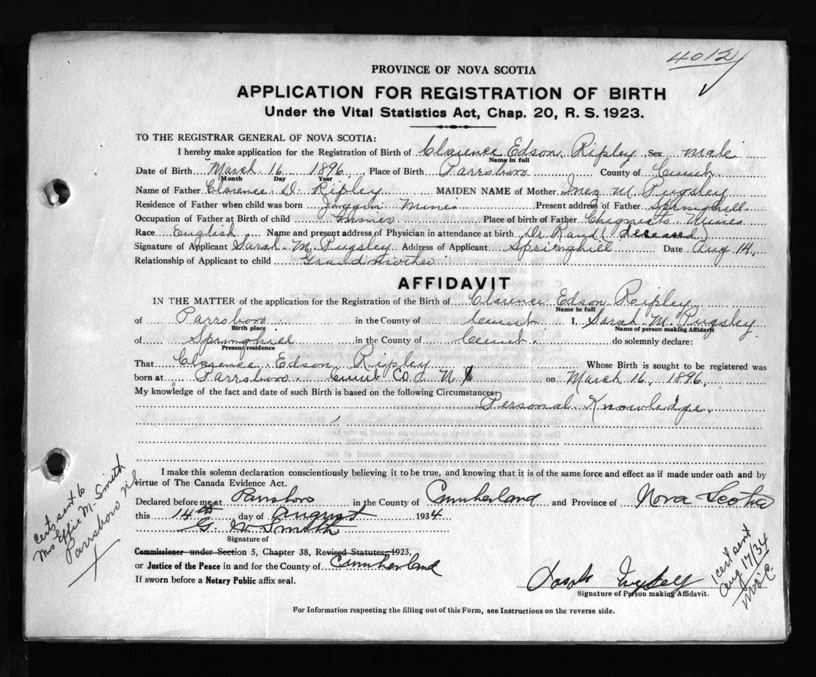 4012
PROVINCE OF NOVA SCOTIA
APPLICATION FOR REGISTRATION OF BIRTH
Under the Vital Statistics Act, Chap. 20, R. S. 1923.
TO THE REGISTRAR GENERAL OF NOVA SCOTIA:
I hereby make application for the Registration of Birth of Clarence Edson Ripley Sex Male
Name in full
Date of Birth March 16 1896 Place of Birth Parrsboro County of Cumb
Month Day Year
Name of Father Clarence D. Ripley MAIDEN NAME of Mother Inez M. Pugsley
Residence of Father when child was born Joggin Mines Present address of Father Springhill
Occupation of Father at Birth of child Miner Place of birth of Father Chignecto Mines
Race English Name and present address of Physician in attendance at birth Dr Rand (deceased)
Signature of Applicant Sarah M. Pugsley Address of Applicant Springhill Date Aug 14,
Relationship of Applicant to child Grandmother
AFFIDAVIT
IN THE MATTER of the application for the Registration of the Birth of Clarence Edson Ripley
Name in full
of Parrsboro in the County of Cumb. I, Sarah M. Pugsley
Birth place Name of person making Affidavit
of Springhill in the County of Cumb. do solemnly declare:
Present residence
That Clarence Edson Ripley Whose Birth is sought to be registered was
born at Parrsboro Cumb Co. N S on March 16, 1896.
My knowledge of the fact and date of such Birth is based on the following Circumstances:
Personal Knowledge.
I make this solemn declaration conscientiously believing it to be true, and knowing that it is of the same force and effect as if made under oath and by
virtue of The Canada Evidence Act.
Declared before me at Parrsboro in the County of Cumberland and Province of Nova Scotia
this 14th day of August 1934
G. W Smith
Signature of
Commissioner under Section 5, Chapter 38, Revised Statutes 1923,
or Justice of the Peace in and for the County of Cumberland
If sworn before a Notary Public affix seal.
Sarah Pugsley
Signature of Person making Affidavit.
For Information respecting the filling out of this Form, see Instructions on the reverse side.
certs sent to
Mrs Effie M. Smith
Parrsboro NS
1 cert sent
Aug 17/34